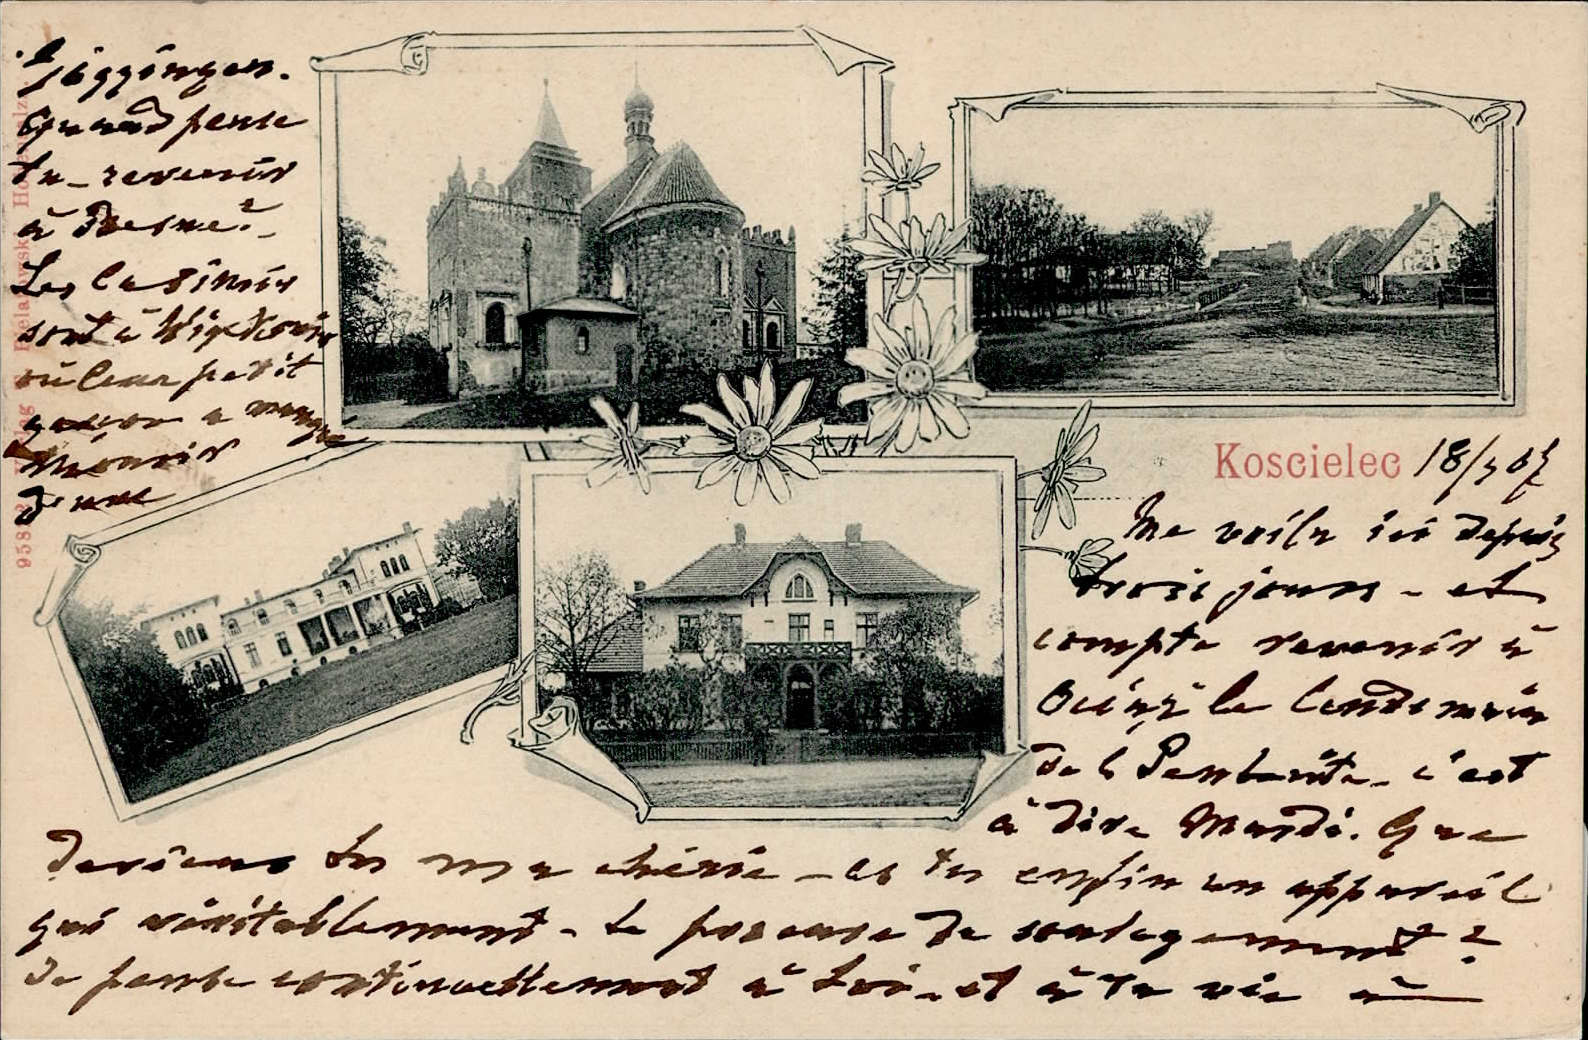 Koscielec 18/5 07
Me voila ici depuis
trois jours - et
compte revenir à
le lendemain
de la Pentecôte - c'est
à dire Mardi. Que
deviens tu ma chérie - as tu enfin un appareil
qui véritablement - te procure de soulagement?
Je pense continuellement à toi - et à ta vie à
Göggingen.
Quand pense
tu - revenir
à Posnie? -
Les Casimir
sont à
où leur petit
garçon a manqué
mourir
d'une
95882